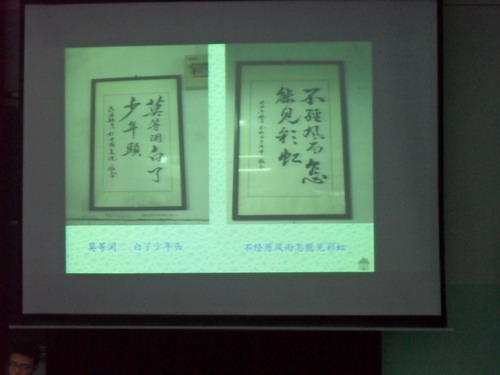 莫等闲白了
少年頭
不經风雨怎
能见彩虹
莫等闲 白了少年头
不经历风雨怎能见彩虹